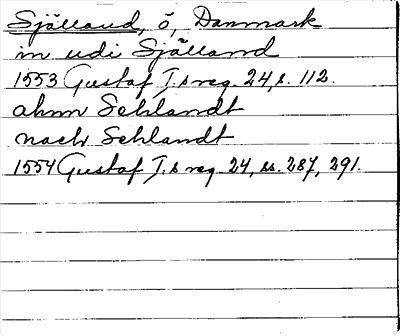 Själland, ö, Danmark
in udi Själland
1553 Gustaf I.s reg. 24, s. 112.
ahnn Sehlandt
nach Sehlandt
1554 Gustaf I.s reg. 24, ss. 287, 291.